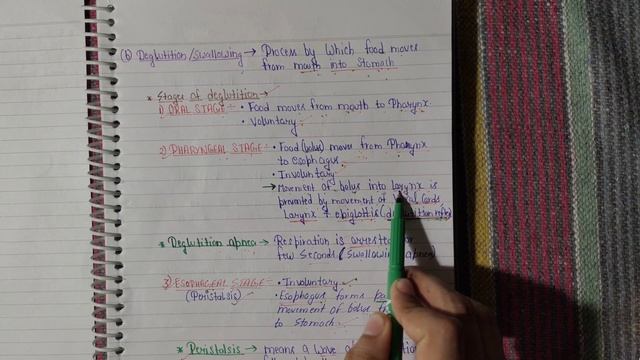 (b) Deglutition/Swallowing → Process by Which food moves
from mouth into Stomach
* Stages of deglutition →
1) ORAL STAGE:- • Food moves from mouth to Pharynx.
• Voluntary
2) PHARYNGEAL STAGE:- • Food (bolus) move from Pharynx
to esophagus
• Involuntary
→ Movement of bolus into Larynx is
prevented by movement of Vocal Cords,
Larynx & epiglottis
* Deglutition apnea → Respiration is arrested for
few Seconds (Swallowing apnea)
3) ESOPHAGEAL STAGE:- • Involuntary
(Peristalsis) • Esophagus forms
movement of bolus
to Stomach.
* Peristalsis → means a Wave